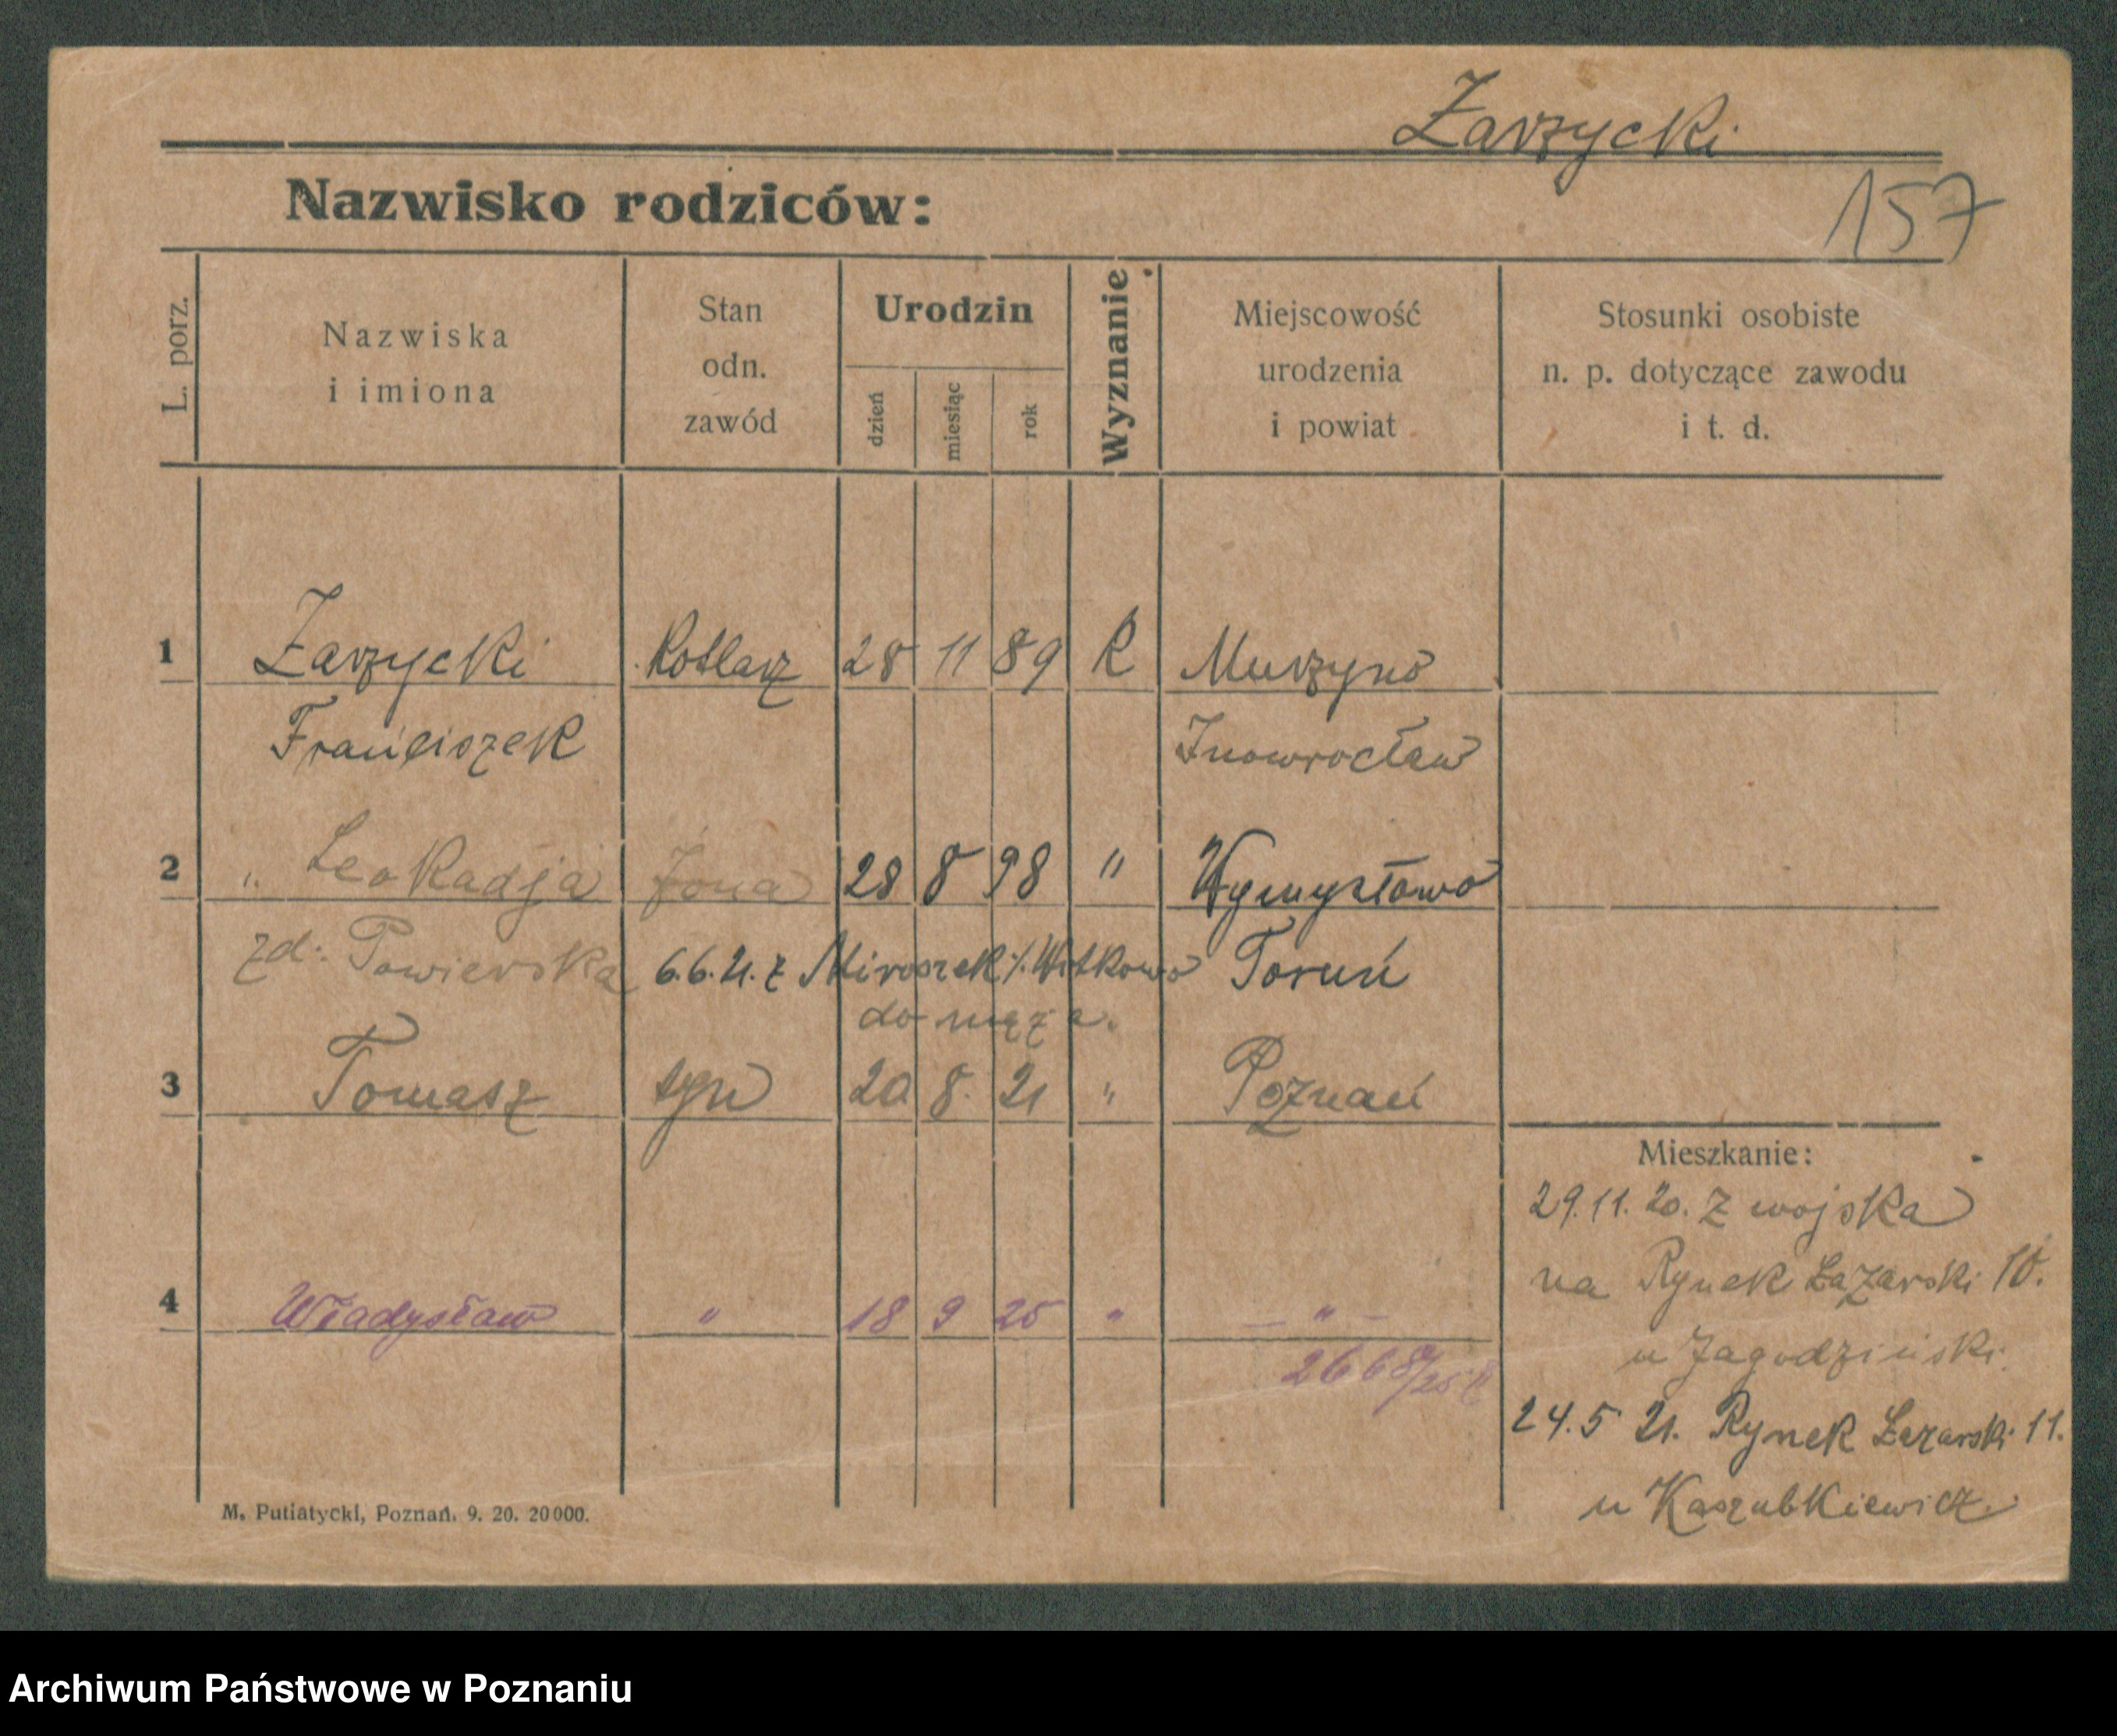 Zarzycki
157
Nazwisko rodziców:
L. porz.
Nazwiska
i imiona
Stan
odn.
zawód
Urodzin
dzień
miesiąc
rok
Wyznanie
Miejscowość
urodzenia
i powiat
Stosunki osobiste
n. p. dotyczące zawodu
i t. d.
1 Zarzycki Kotlarz 28 11 89 R Murzyno
Franciszek Inowrocław
2 " Leokadja żona 28 8 98 " Wymysłowo
zd: Powierska 6.6.21. z Miroszek /. Witkowo Toruń
do męża.
3 Tomasz syn 20 8. 21 " Poznań
Mieszkanie:
29.11.20. Z wojska
na Rynek Łazarski 10.
u Jagodziński.
24.5 21. Rynek Łazarski 11.
u Kaszubkiewicz.
4 Władysław " 18 9 25 " — " —
2668/25
M. Putiatycki, Poznań. 9. 20. 20000.
Archiwum Państwowe w Poznaniu